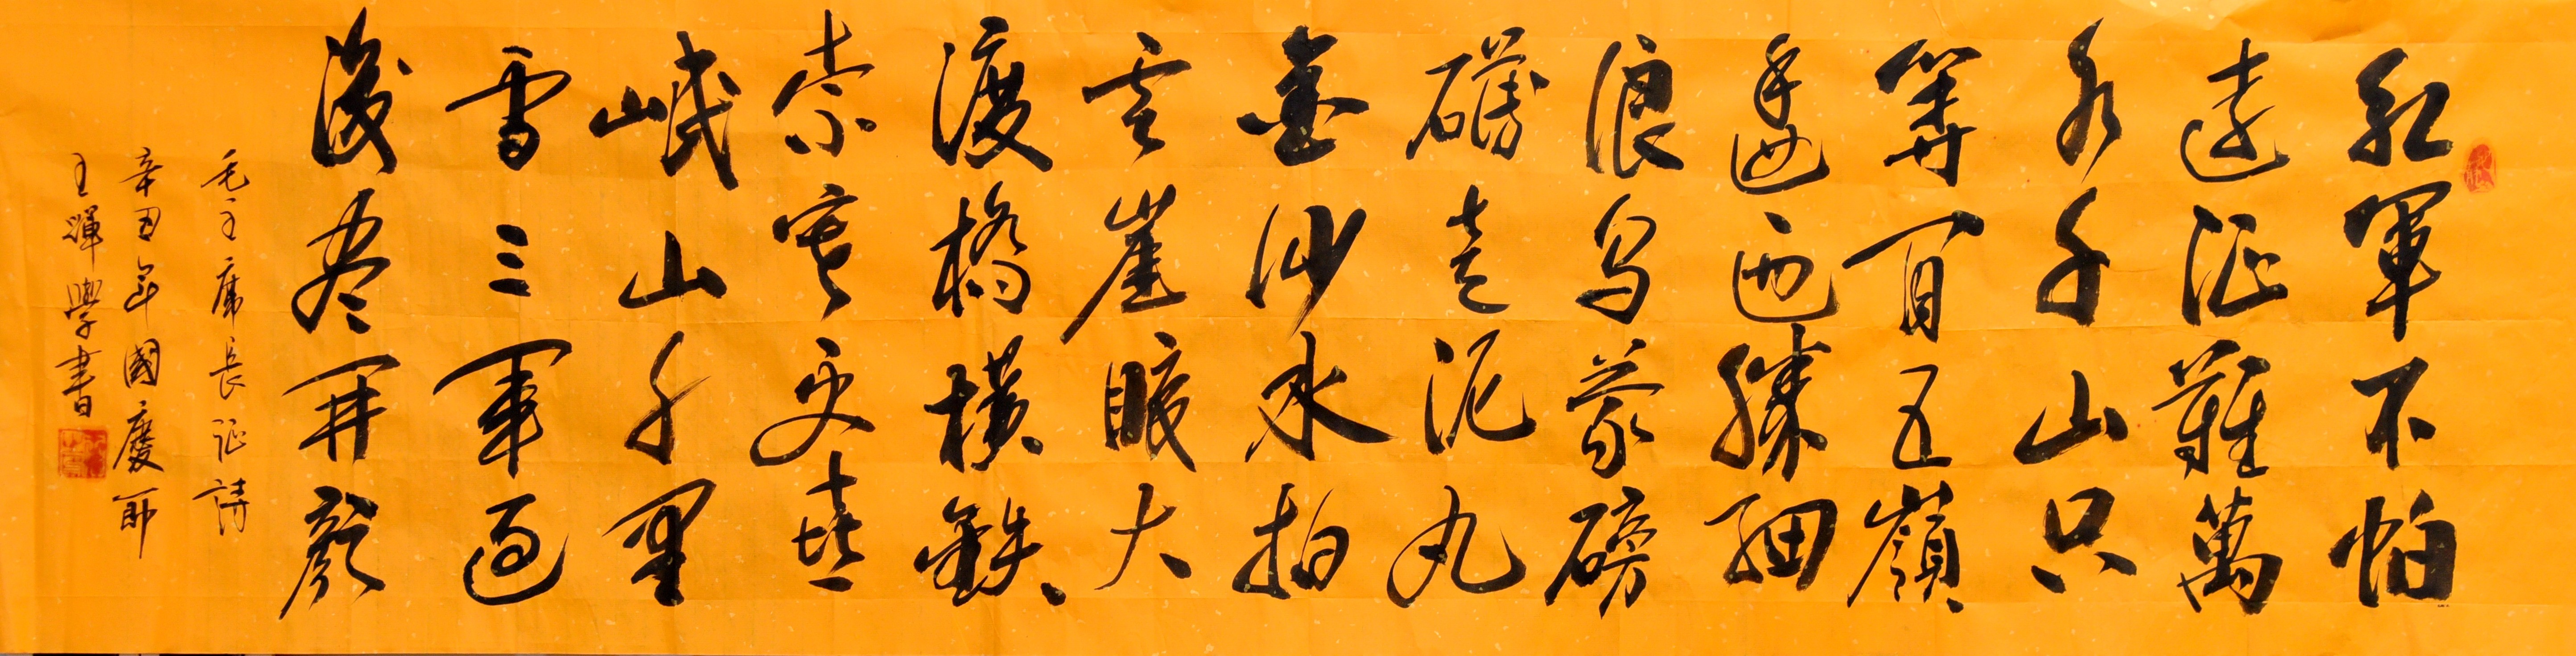 紅軍不怕
遠征難萬
水千山只
等閒五嶺
逶迤騰細
浪烏蒙磅
礴走泥丸
金沙水拍
雲崖暖大
渡橋橫鉄
索寒更喜
岷山千里
雪三軍過
後尽開顏
毛主席長征詩
辛丑年國慶節
王輝學書